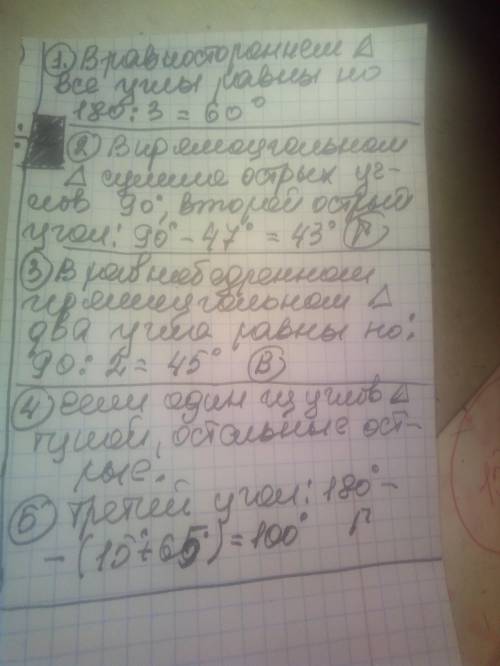 1. В равностороннем Δ
все углы равны по
180 : 3 = 60°
2 В прямоугольном
Δ сумма острых уг-
лов 90°, второй острый
угол: 90° - 47° = 43° Г
3 В равнобедренном
прямоугольном Δ
два угла равны по:
90 : 2 = 45° В
4 если один из углов Δ
тупой, остальные ост-
рые.
5 Третий угол: 180° -
- (15° + 65°) = 100° Г